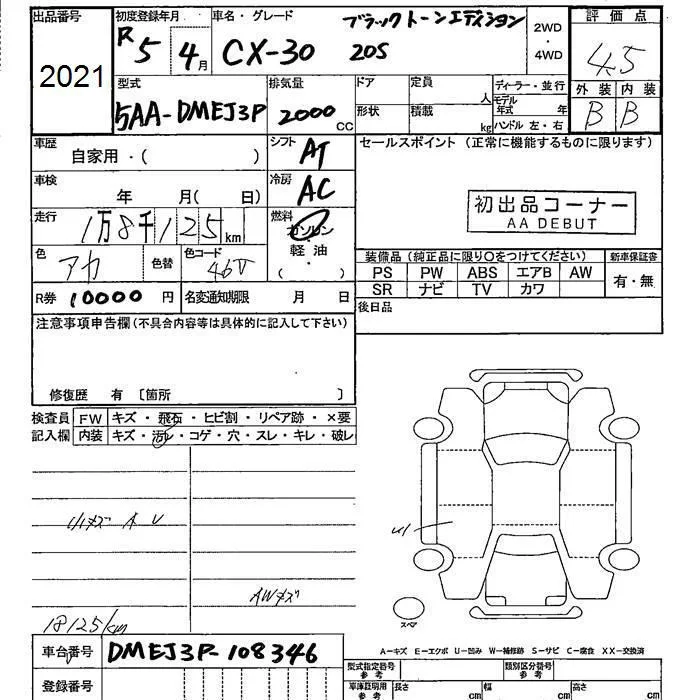 出品番号 初度登録年月 車名・グレード ブラックトーンエディション 2WD・4WD 評価点
2021 R5 4月 CX-30 20S 4.5
型式 排気量 ドア 定員 人 ディーラー・並行 外装 内装
5AA-DMEJ3P 2000 CC 形状 積載 kg モデル年式 年 ハンドル 左・右 B B
車歴 自家用・( ) シフト AT セールスポイント (正常に機能するものに限ります)
車検 年 月( 日) 冷房 AC 初出品コーナー
AA DEBUT
走行 1万8千125km 燃料 ガソリン・軽油・( )
色 アカ 色替 色コード 46V 装備品(純正品に限り○をつけてください) 新車保証書
PS PW ABS エアB AW 有・無
SR ナビ TV カワ
R券 10000円 名変通知期限 月 日 後日品
注意事項申告欄(不具合内容等は具体的に記入して下さい)
修復歴 有〔箇所 〕
検査員 FW キズ・飛石・ヒビ割・リペア跡・×要
記入欄 内装 キズ・汚レ・コゲ・穴・スレ・キレ・破レ
A U
AWキズ
18125/km
スペア
A-キズ E-エクボ U-凹み W-補修跡 S-サビ C-腐食 XX-交換済
車台番号 DMEJ3P-108346 型式指定番号 参考 類別区分番号 参考
登録番号 車庫証明用 参考 長さ cm 幅 cm 高さ cm